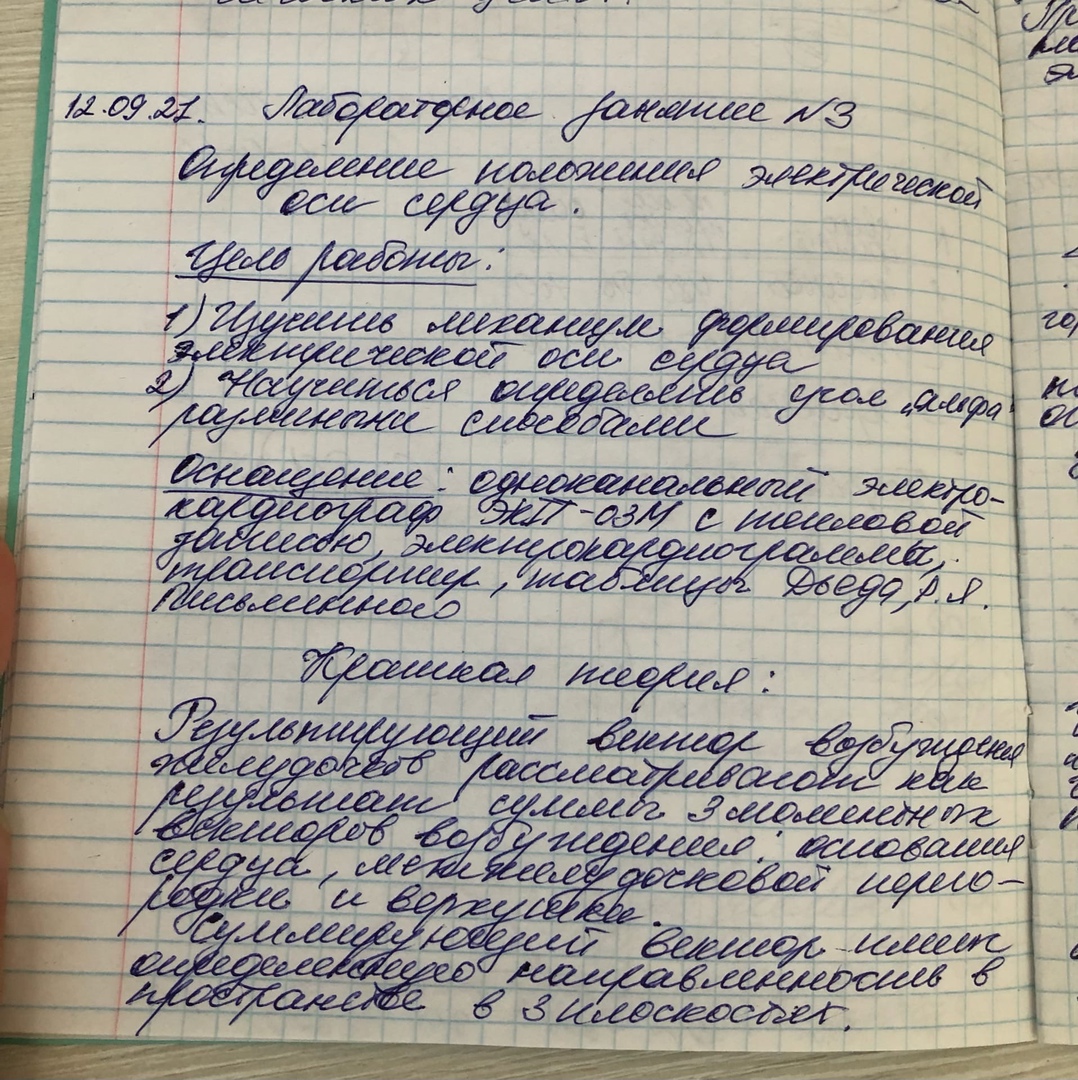 12.09.21. Лабораторное занятие №3
Определение положения электрической
оси сердца.
Цель работы:
1) Изучить механизм формирования
электрической оси сердца
2) Научиться определять угол „альфа"
различными способами
Оснащение: одноканальный электро-
кардиограф ЭКТ-03М с тепловой
записью, электрокардиограммы,
транспортир, таблицы Дьеда, Р.Я.
Письменного
Краткая теория:
Результирующий вектор возбуждения
желудочков рассматривают как
результат суммы 3 моментных
векторов возбуждения: основания
сердца, межжелудочковой перего-
родки и верхушки.
Суммирующий вектор имеет
определенную направленность в
пространстве в 3 плоскостях.